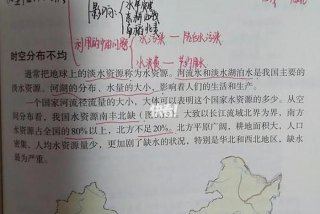 影响
水污染 → 防治水污染
利用的中的问题
水浪费 → 节约用水
时空分布不均
通常把地球上的淡水资源称为水资源。河流水和淡水湖泊水是我国主要的
淡水资源。河湖的分布、水量的大小,影响着人们的生活和生产。
一个国家河流径流量的大小,大体可以表明这个国家水资源的多少。从空
间分布看,我国水资源南丰北缺(图 大致以长江流域北界为界,南方
水资源占全国的80%以上,北方不足20%。北方平原广阔,耕地面积大,人口
密集,人均水资源量少,更加剧了缺水的状况,特别是华北和西北地区,缺水
最为严重。